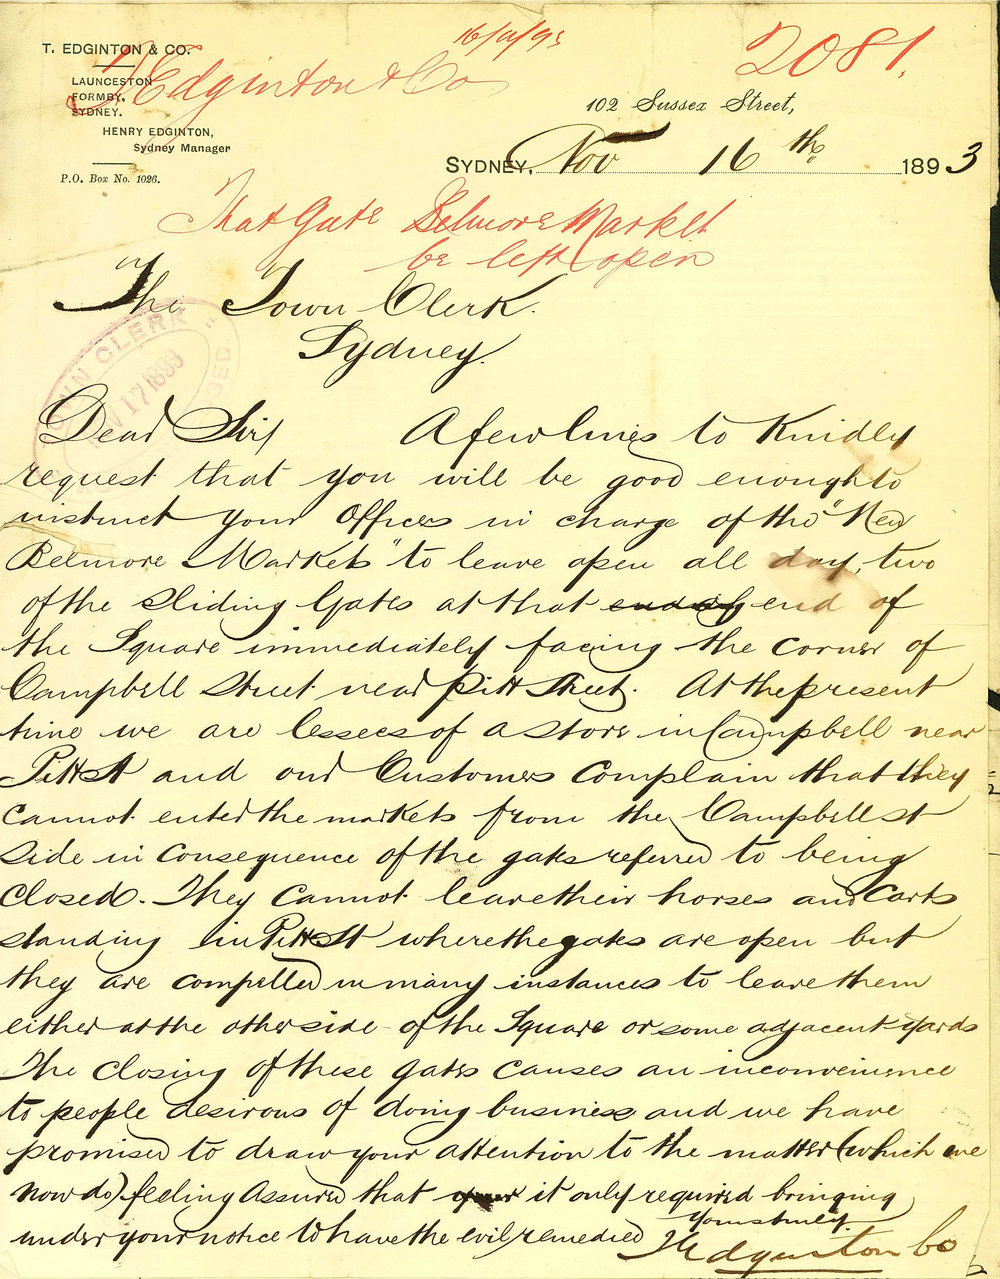 16/11/93
2081.
T. EDGINTON & CO.
T Edginton & Co
LAUNCESTON
FORMBY,
SYDNEY.
HENRY EDGINTON,
Sydney Manager
P.O. Box No. 1026.
102 Sussex Street,
SYDNEY, Nov 16th 1893
That Gate Belmore Market
be left open
The Town Clerk.
Sydney.
TOWN CLERK
NOV 17 1893
Dear Sir, A few lines to Kindly
request that you will be good enough to
instruct your Officer in charge of the "New
Belmore Markets" to leave open all day, two
of the Sliding Gates at that end of end of
the Square immediately facing the corner of
Campbell Street near Pitt Street. At the present
time we are lessees of a store in Campbell near
Pitt St and our Customers complain that they
cannot enter the markets from the Campbell st
side in consequence of the gates referred to being
closed. They cannot leave their horses and carts
standing in Pitt St where the gates are open but
they are compelled in many instances to leave them
either at the other side of the Square or some adjacent yards
The closing of these gates causes an inconvenience
to people desirous of doing business and we have
promised to draw your attention to the matter (which we
now do) feeling assured that it only required bringing
under your notice to have the evil remedied
Yours truly.
T Edginton Co